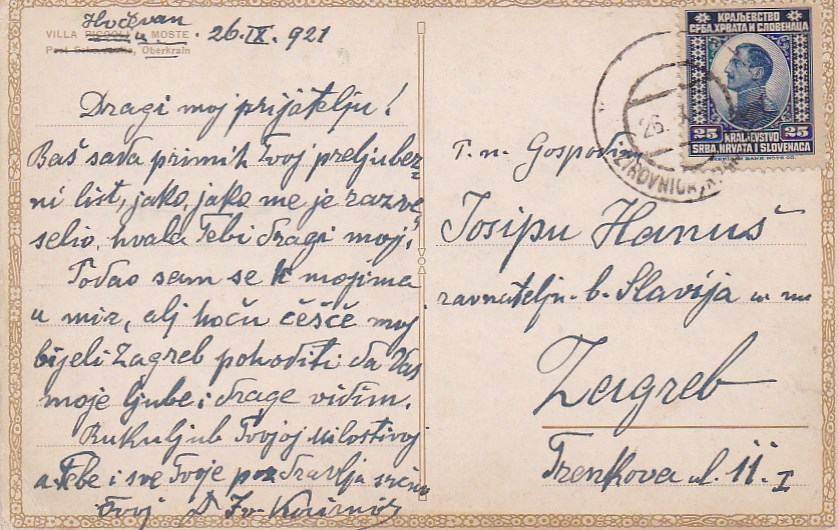 Hočevar
VILLA PICCOLI u. MOSTE . 26. IX. 921
Oberkrain
Dragi moj prijatelju!
Baš sada primih Tvoj preljubez=
ni list, jako, jako me je razve=
selio, hvala Tebi dragi moj!
Podao sam se k mojima
u mir, alj hoću češće moj
bijeli Zagreb pohoditi da Vas
moje ljube i drage vidim.
Rukuljub Tvojoj Milostivoj
a Tebe i sve Tvoje pozdravlja srčno
Tvoj Dr Iv.
КРАЉЕВСТВО
СРБА, ХРВАТА И СЛОВЕНАЦА
25 KRALJEVSTVO 25
SRBA, HRVATA I SLOVENACA
26.
T. n. Gospodin
Josipu Hanuš
ravnatelju b. Slavija u m
Zagreb
Trenkova ul. 11. I